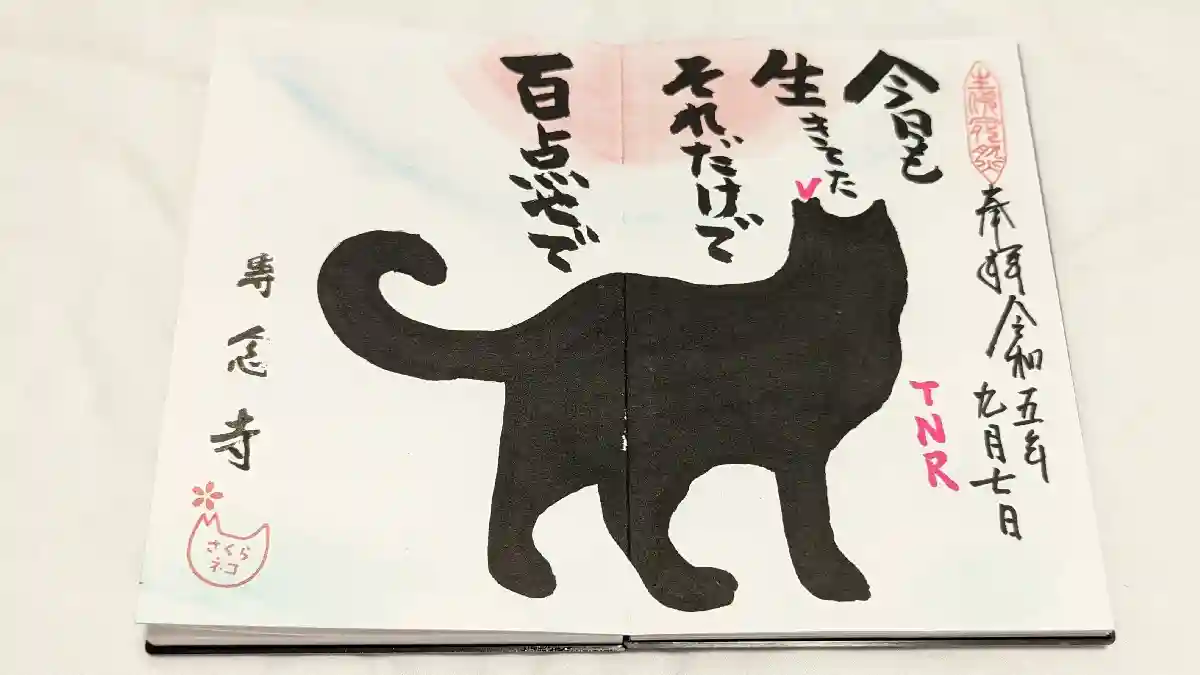 奉拝 令和五年
九月七日
今日も
生きてた
それだけで
百点やで
TNR
専念寺
さくら
ネコ